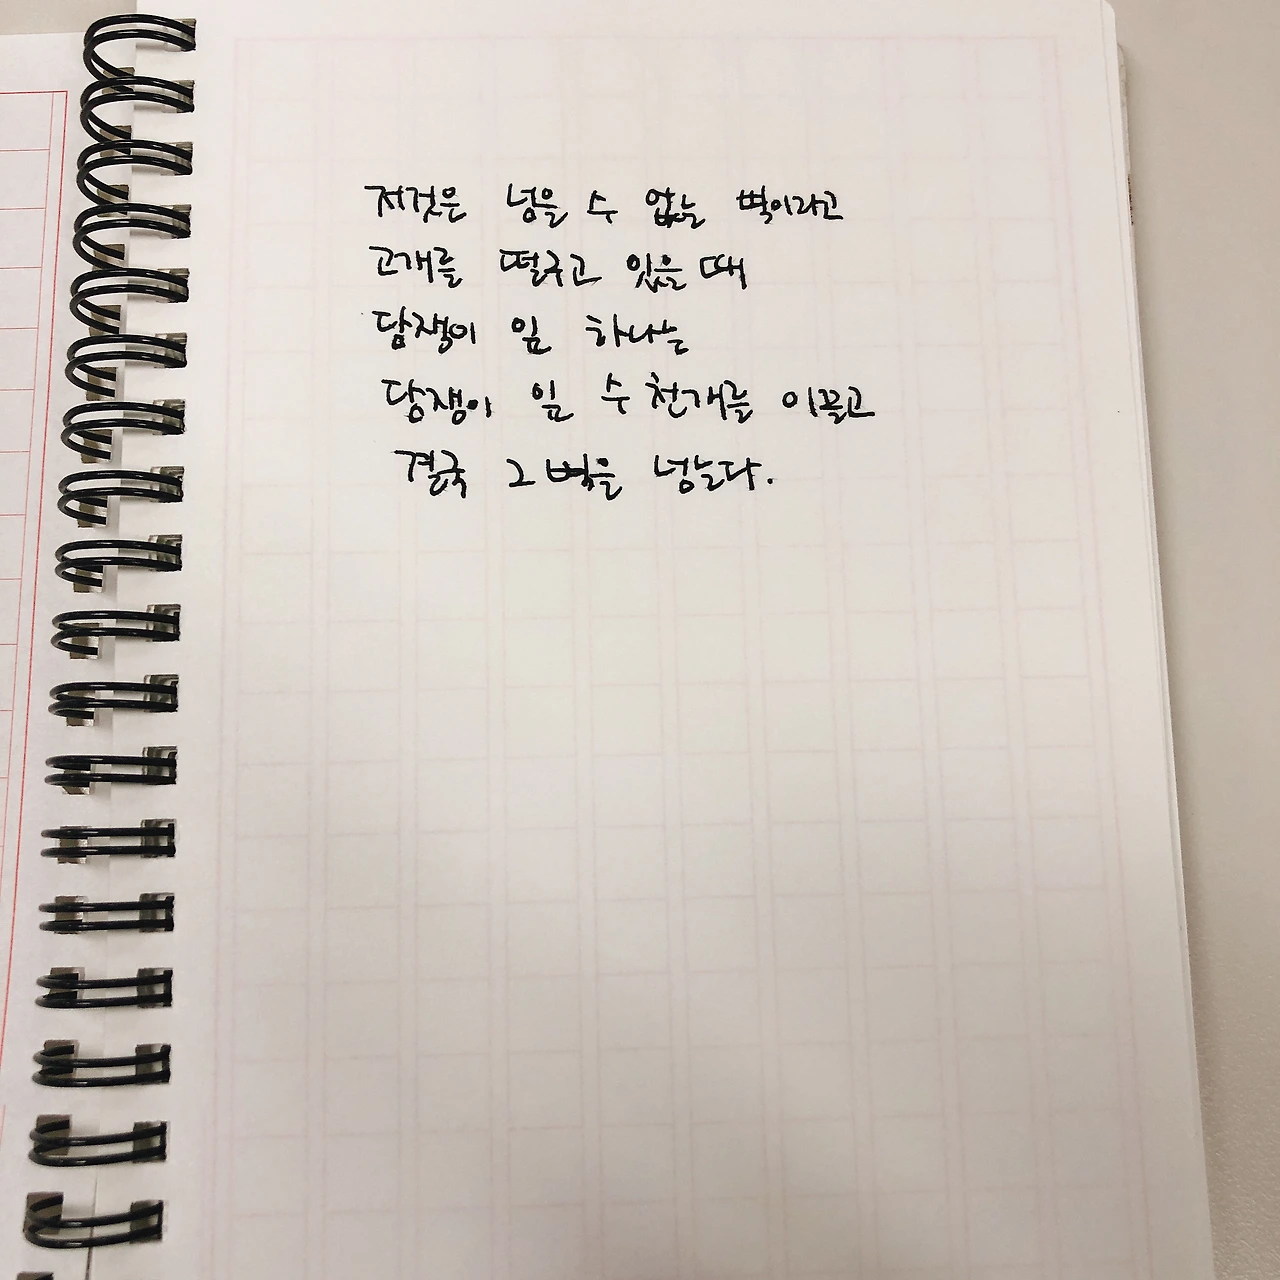 저것은 넘을 수 없는 벽이라고
고개를 떨구고 있을 때
담쟁이 잎 하나는
담쟁이 잎 수천개를 이끌고
결국 그 벽을 넘는다.